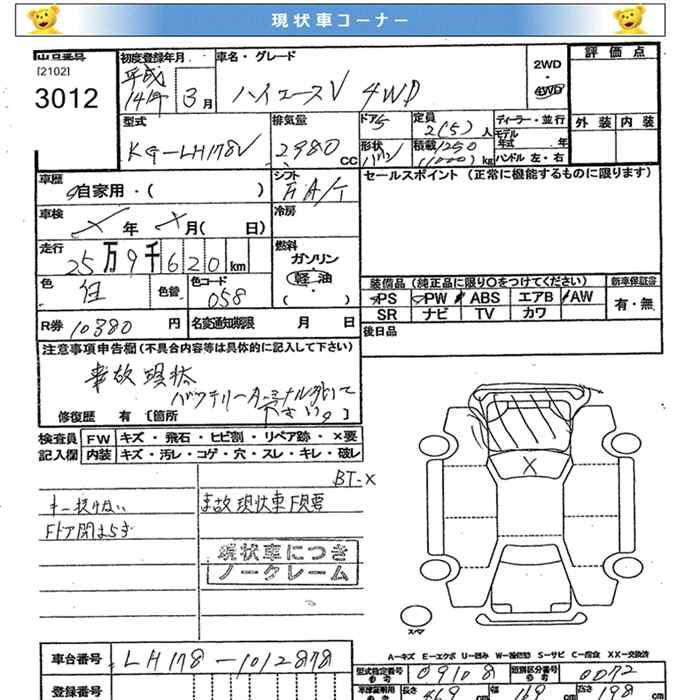 現状車コーナー
出品番号
[2102]
3012
初度登録年月
平成
14年 3月
車名・グレード
ハイエースV 4WD
2WD
・
4WD
評価点
外装 内装
型式
KG-LH178V
排気量
2980 CC
ドア 5
形状 バン
定員 2(5)人
積載 1250 (1000) kg
ディーラー・並行
モデル年式 年
ハンドル 左・右
車歴
自家用・( )
シフト
F A/T
セールスポイント (正常に機能するものに限ります)
車検
× 年 × 月( 日)
冷房
走行
25万9千620km
燃料
ガソリン
・
軽油
・
( )
色
色替
色コード
058
装備品 (純正品に限り○をつけてください)
新車保証書
PS PW ABS エアB AW
SR ナビ TV カワ
有・無
R券 10380 円
名変通知期限 月 日
後日品
注意事項申告欄 (不具合内容等は具体的に記入して下さい)
事故現状
バッテリーターミナル外して
下さい。
修復歴 有 〔箇所
検査員
記入欄
FW キズ・飛石・ヒビ割・リペア跡・×要
内装 キズ・汚レ・コゲ・穴・スレ・キレ・破レ
BT-X
キー抜けない
事故現状車 下見要
Fドア閉まらず
現状車につき
ノークレーム
X
スペア
A-キズ E-エクボ U-凹み W-補修跡 S-サビ C-腐食 XX-交換済
車台番号 LH178-1012878
型式指定番号
参考
09108
類別区分番号
参考
0072
登録番号
車庫証明用
参考
長さ 469 cm
幅 169 cm
高さ 198 cm